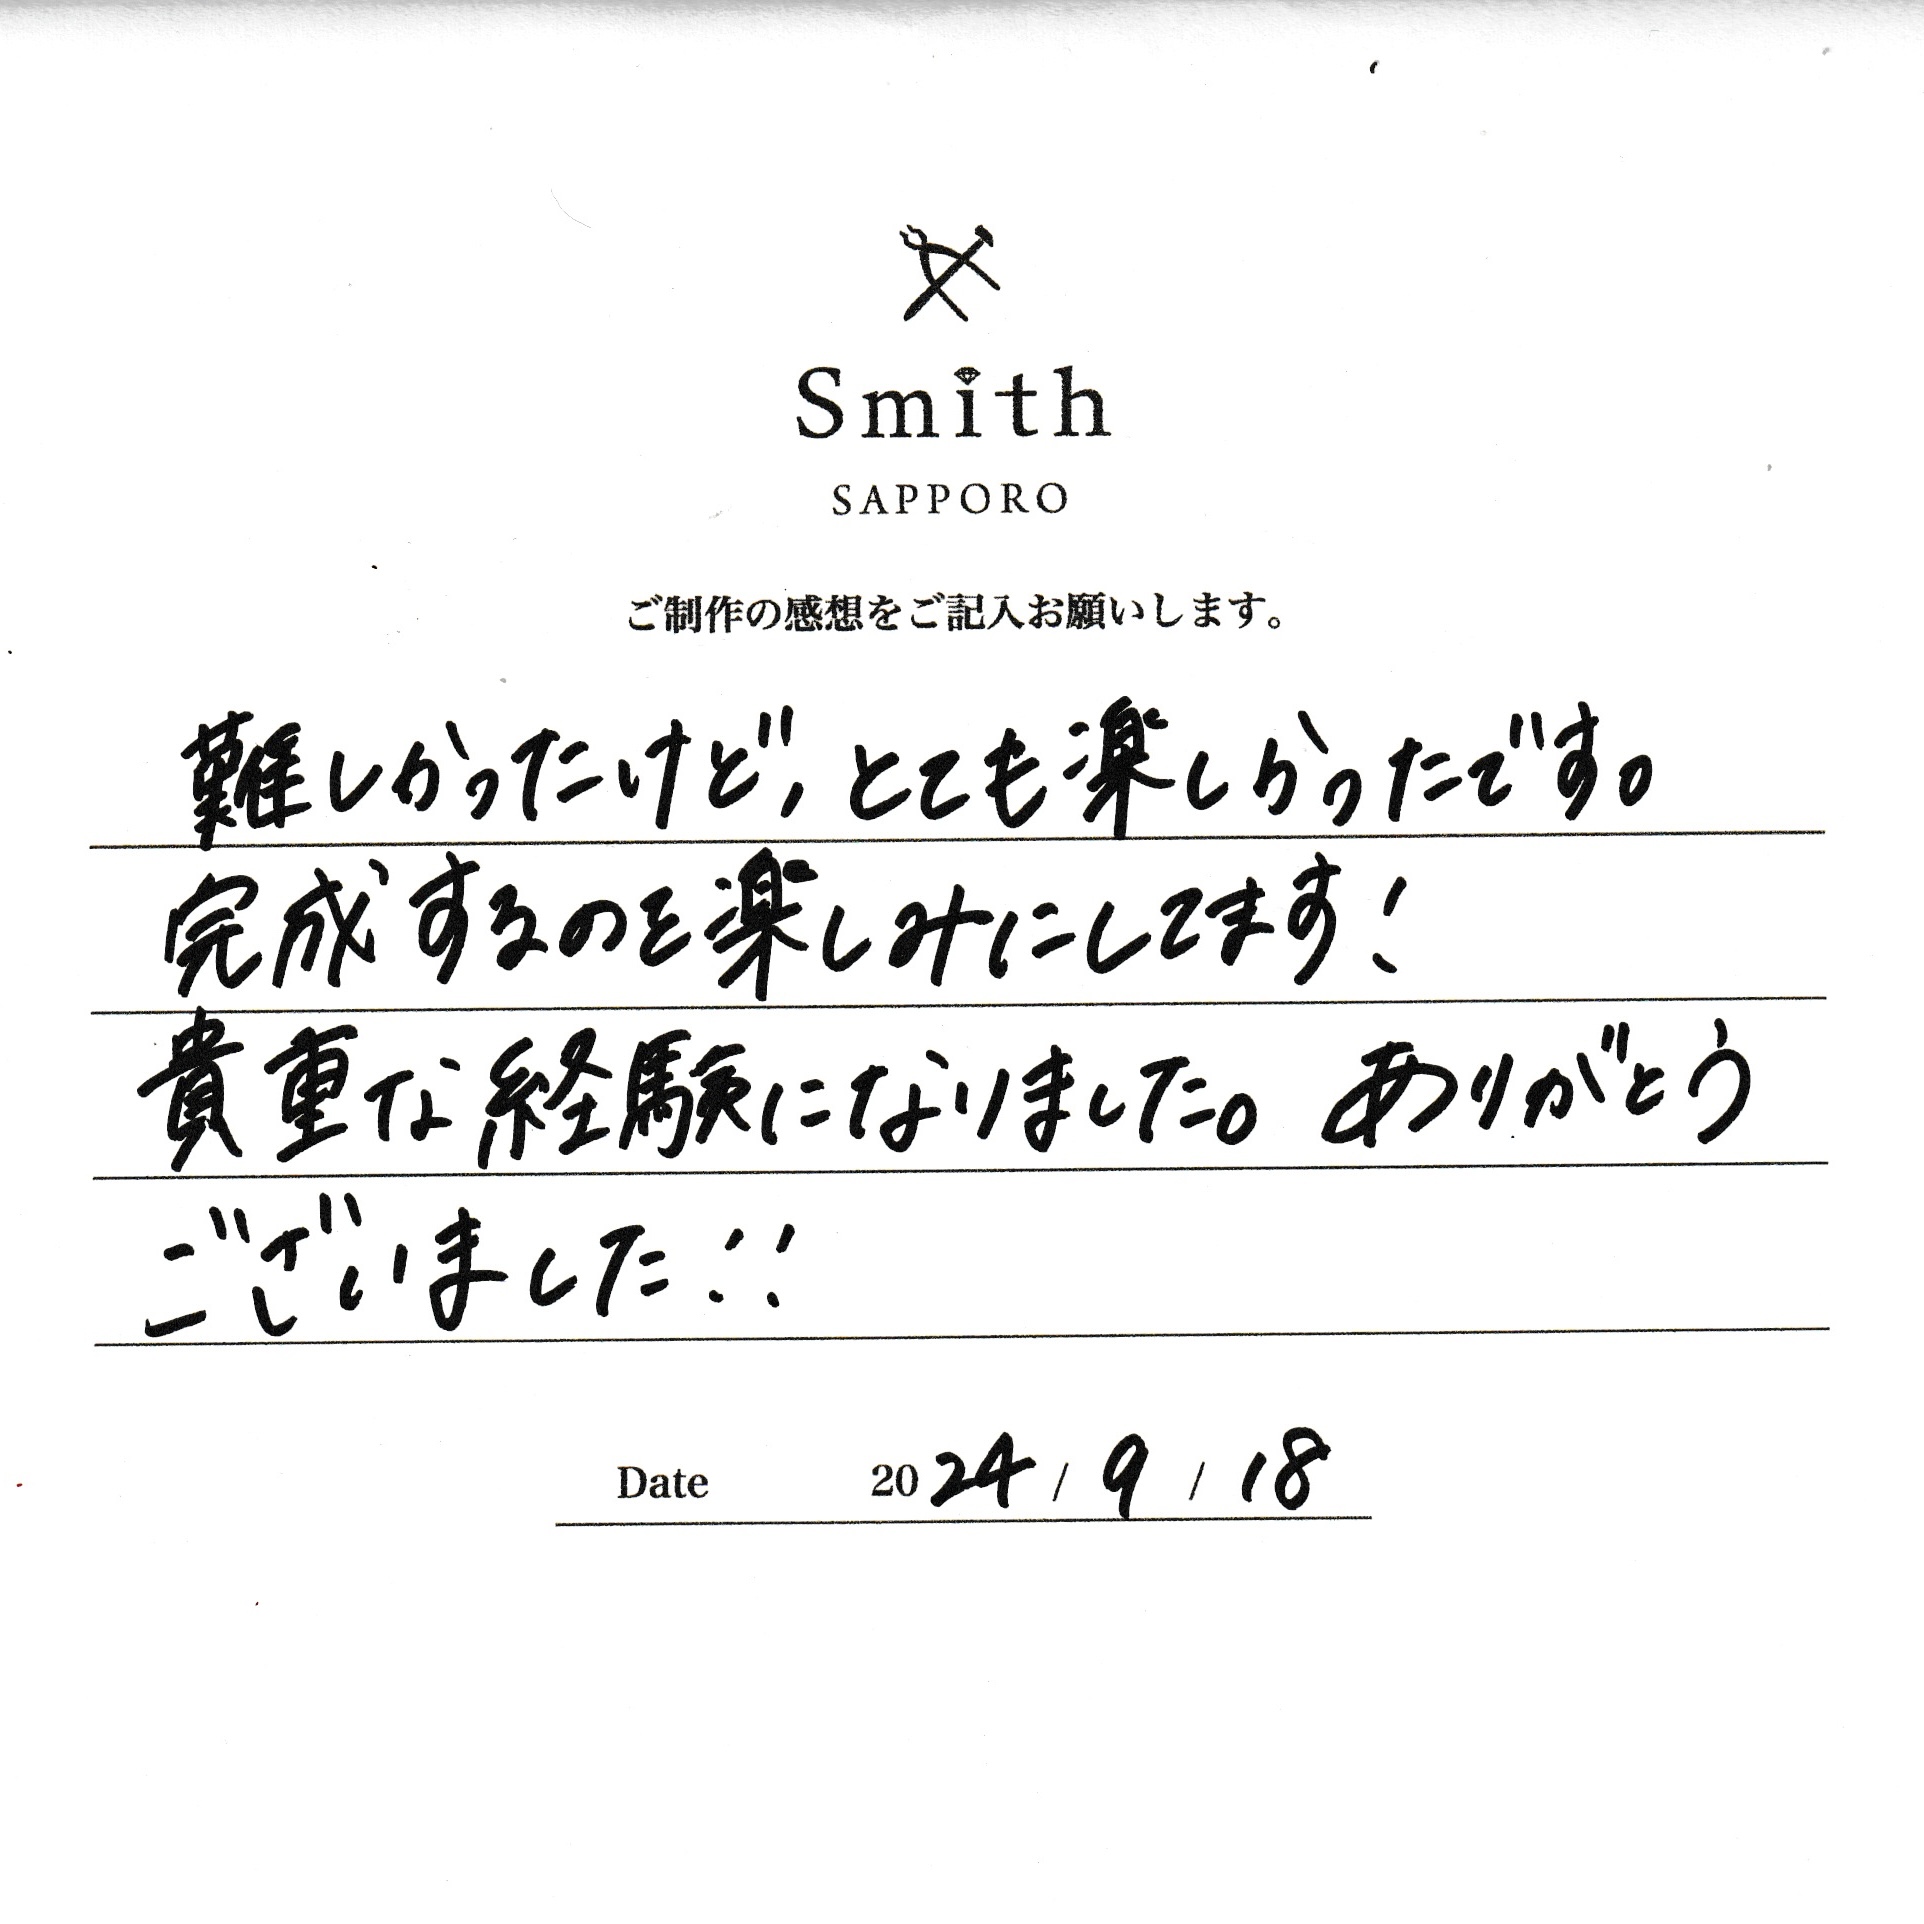 Smith
SAPPORO
ご制作の感想をご記入お願いします。
難しかったけど、とても楽しかったです。
完成するのを楽しみにしてます!
貴重な経験になりました。ありがとう
ございました!!
Date 2024 / 9 / 18